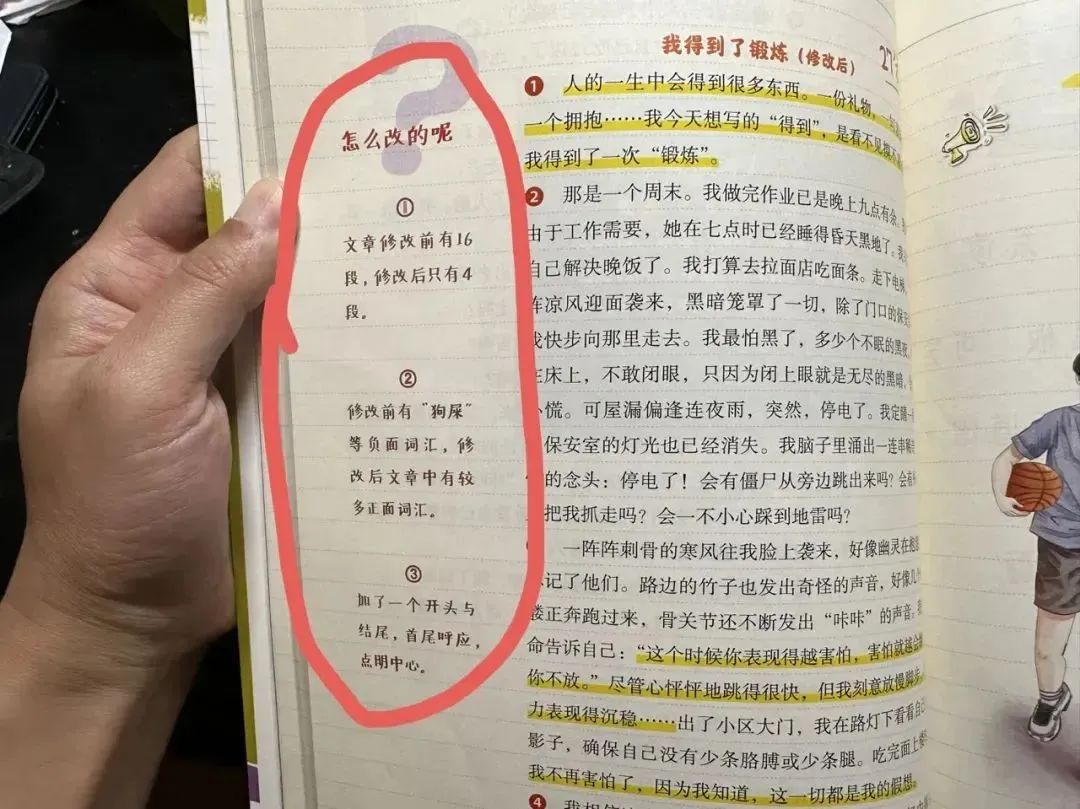 怎么改的呢
①
文章修改前有16
段，修改后只有4
段。
②
修改前有“狗屎”
等负面词汇，修
改后文章中有较
多正面词汇。
③
加了一个开头与
结尾，首尾呼应，
点明中心。
我得到了锻炼（修改后）
27
1 人的一生中会得到很多东西。一份礼物，一
一个拥抱……我今天想写的“得到”，是看不见摸不
我得到了一次“锻炼”。
2 那是一个周末。我做完作业已是晚上九点有余。
由于工作需要，她在七点时已经睡得昏天黑地了。
自己解决晚饭了。我打算去拉面店吃面条。走下电梯，
阵凉风迎面袭来，黑暗笼罩了一切，除了门口的保安
我快步向那里走去。我最怕黑了，多少个不眠的黑夜，
在床上，不敢闭眼，只因为闭上眼就是无尽的黑暗，
慌。可屋漏偏逢连夜雨，突然，停电了。我定睛一
保安室的灯光也已经消失。我脑子里涌出一连串稀
的念头：停电了！会有僵尸从旁边跳出来吗？会有
把我抓走吗？会一不小心踩到地雷吗？
一阵阵刺骨的寒风往我脸上袭来，好像幽灵在
记了他们。路边的竹子也发出奇怪的声音，好像几个
髅正奔跑过来，骨关节还不断发出“咔咔”的声音。
命告诉自己：“这个时候你表现得越害怕，害怕就越会
你不放。”尽管心怦怦地跳得很快，但我刻意放慢脚步，
力表现得沉稳……出了小区大门，我在路灯下看看自己
影子，确保自己没有少条胳膊或少条腿。吃完面上楼
我不再害怕了，因为我知道，这一切都是我的假想。
4 我相信